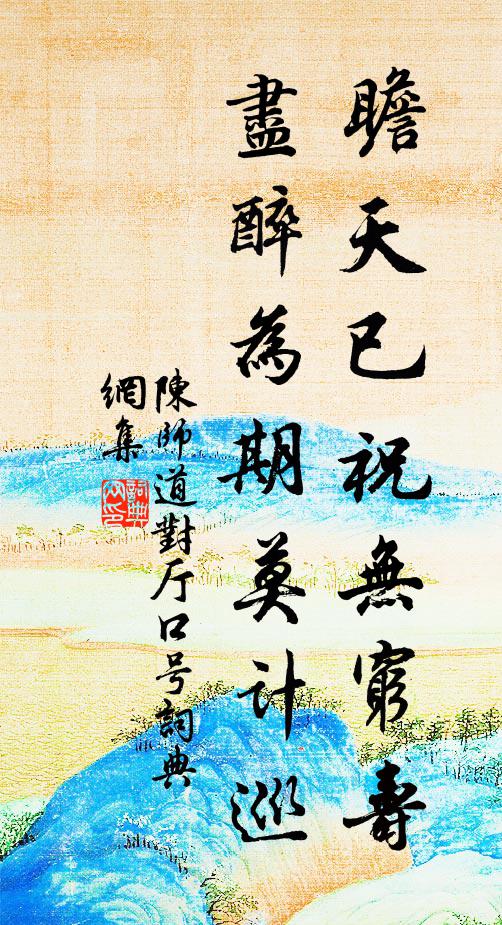 瞻天已祝無窮壽
盡醉為期莫計巡
陳師道對厅口号詞典
網集